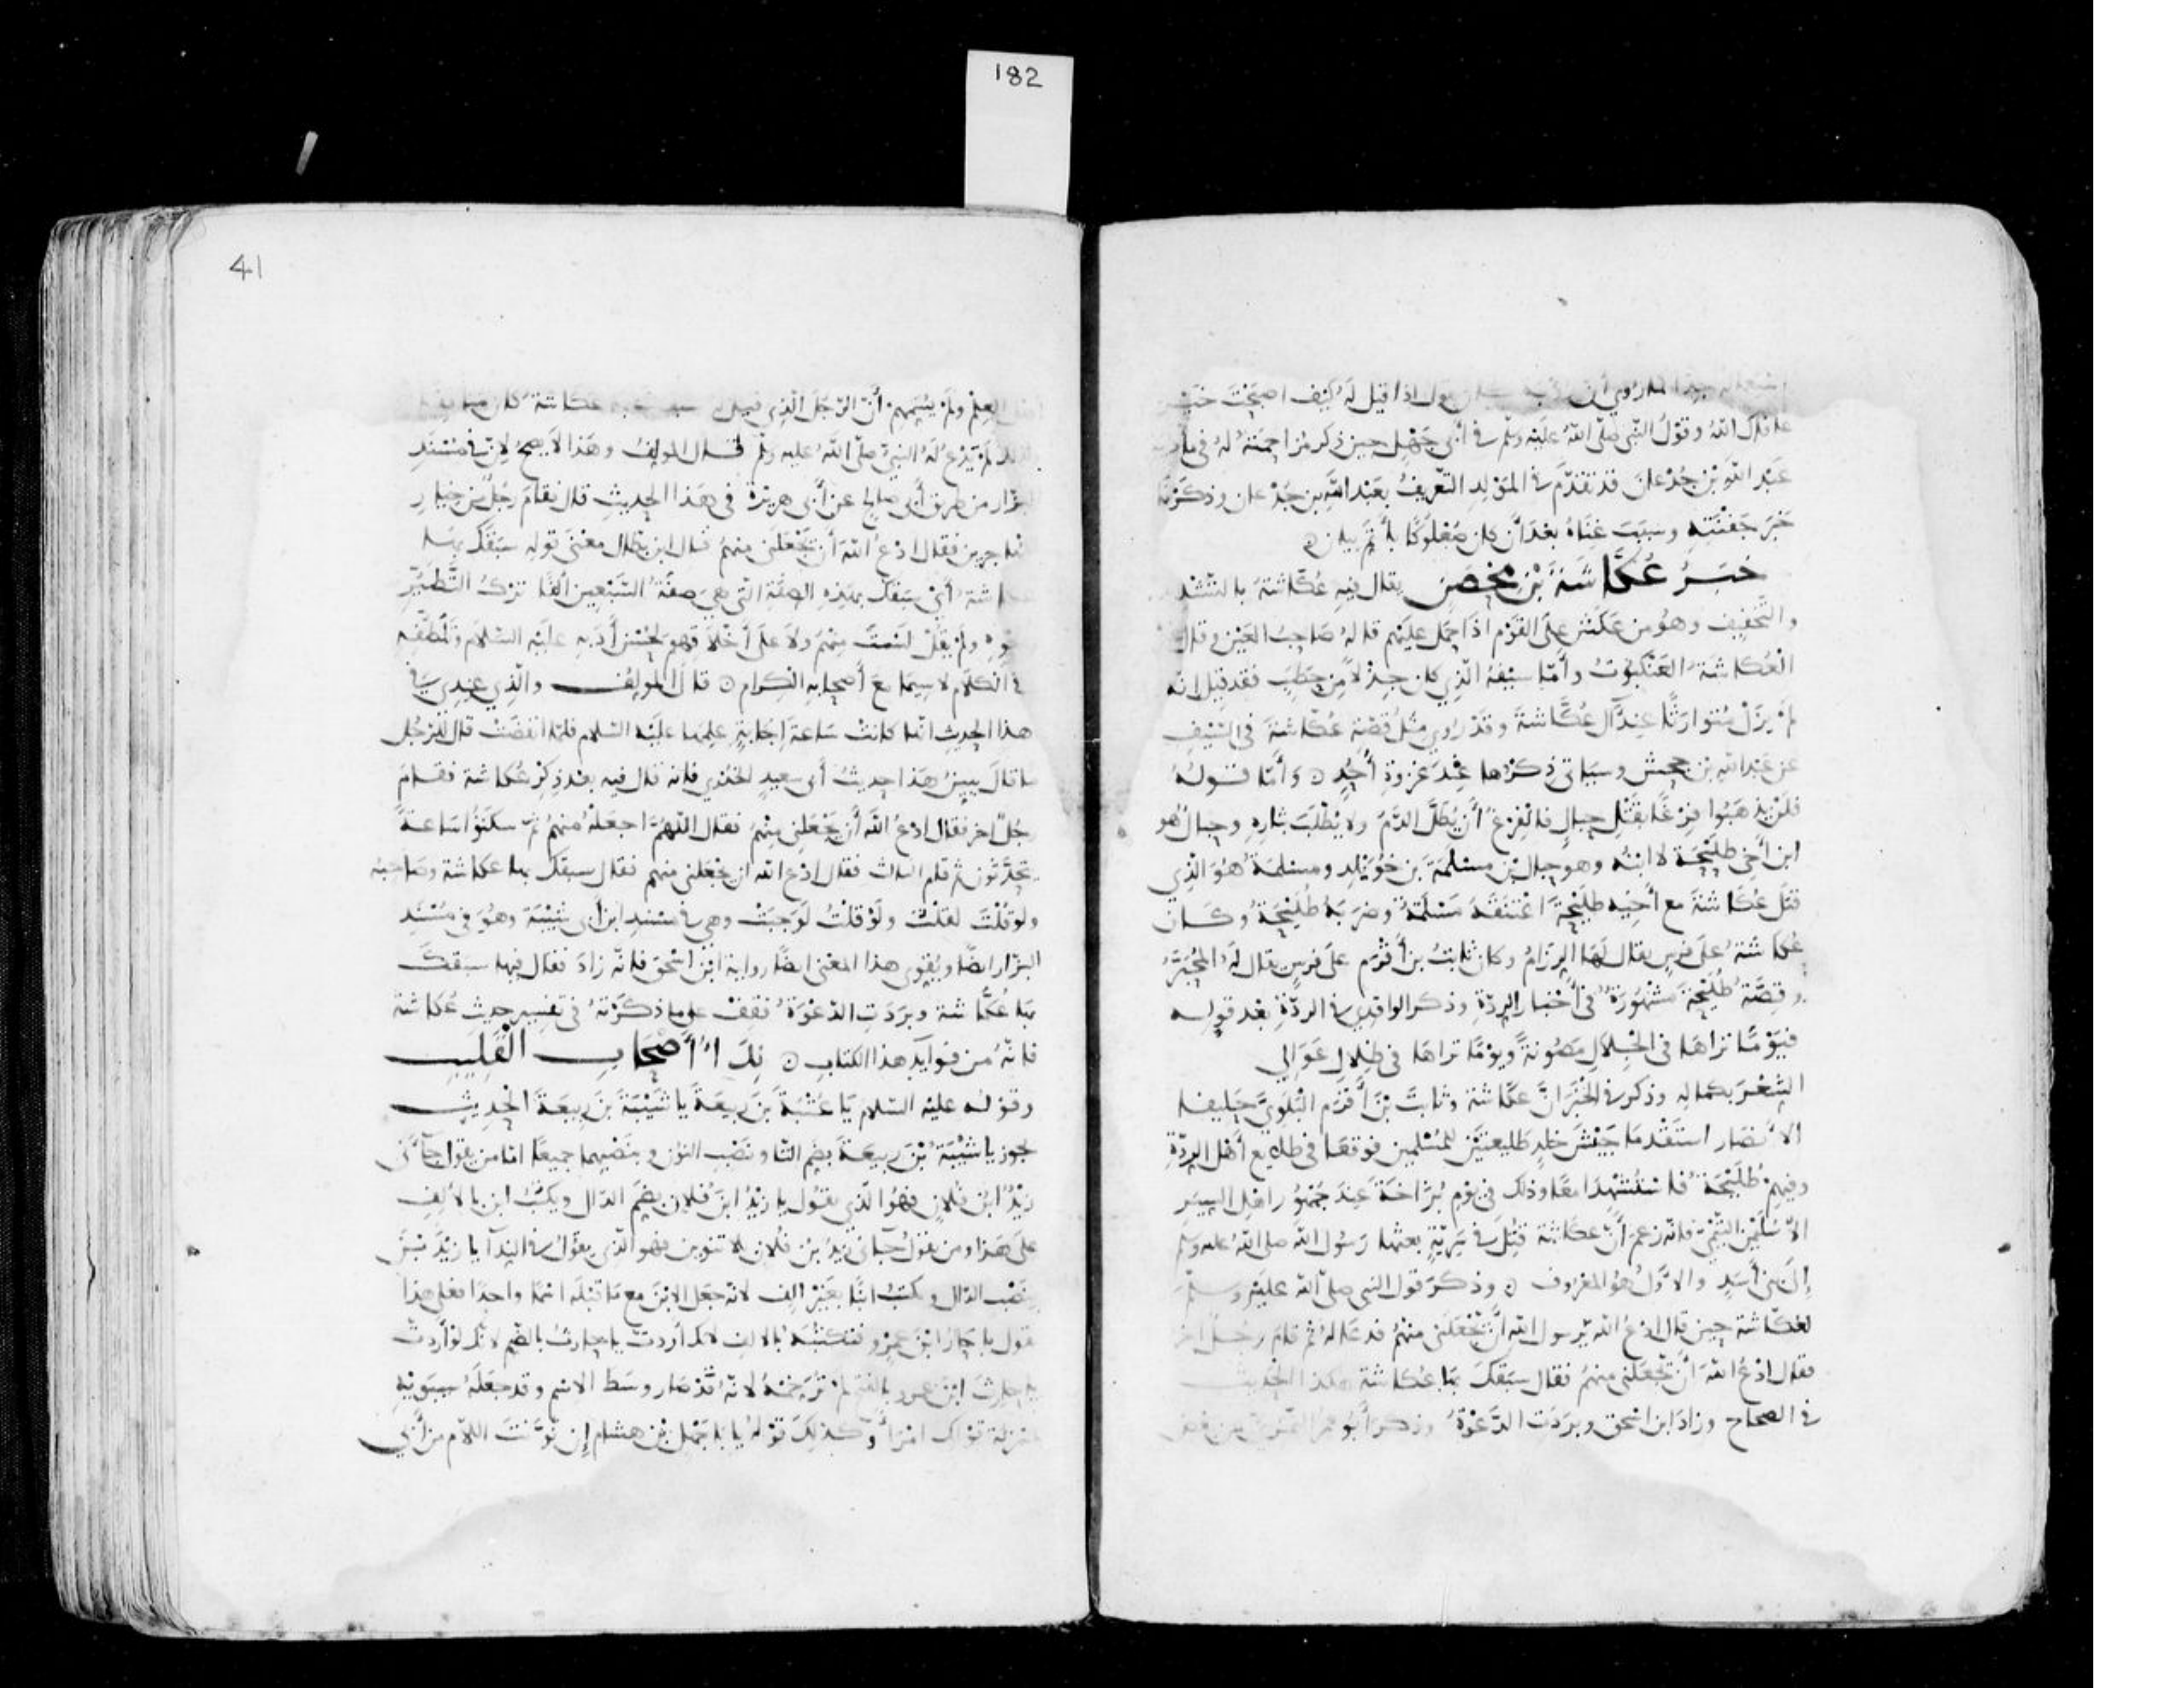 182
لما روي أن يقول اذا قيل له كيف اصبحت
ما قال الله وقول النبي صلى الله عليه وسلم في أبي جهل حين ذكر مزاحمته له في مأدبة
عبد الله بن جدعان قد تقدم في المولد التعريف بعبد الله بن جدعان وذكرنا
خبر جفنته وسبب غناه بعد أن كان صعلوكا بأتم بيان ه
خبر عكاشة بن محصن يقال فيه عكاشة بالتشديد
والتخفيف وهو من عكش على القوم اذا حمل عليهم قاله صاحب العين وقال
العكاشة العنكبوت وأما سيفه الذي كان جزلا من حطب فقد قيل انه
لم يزل متوارثا عند آل عكاشة وقد روي مثل قصة عكاشة في السيف
عن عبد الله بن جحش وسياتي ذكرها عند غزوة أحد ه وأما قوله
فلن يذهبوا فرغا بقتل حبال فالفرغ أن يطل الدم ولا يطلب بثاره وحبال هو
ابن أخي طليحة لا ابنه وهو حبال بن مسلمة بن خويلد ومسلمة هو الذي
قتل عكاشة مع أخيه طليحة اعتنقه مسلمة وضربه طليحة وكان
عكاشة على فرس يقال لها الرزام وكان ثابت بن أقرم على فرس يقال له المحبر
وقصة طليحة مشهورة في أخبار الردة وذكر الواقدي في الردة بعد قوله
فيوما تراها في الجلال مصونة ويوما تراها في ظلال عوالي
الشعر بكماله وذكر في الخبر ان عكاشة وثابت بن أقرم البلوي حليف
الانصار استقدما جيش خلد طليعتين للمسلمين فوقعا في طلايع أهل الردة
وفيهم طليحة فاستشهدا معا وذلك في يوم بزاخة عند جمهور اهل السير
الا سليمن التيمي فانه زعم أن عكاشة قتل في سرية بعثها رسول الله صلى الله عليه وسلم
إلى بني أسد والاول هو المعروف ه وذكر قول النبي صلى الله عليه وسلم
لعكاشة حين قال ادع الله يرسول الله أن يجعلني منهم فدعا له ثم قام رجل اخر
فقال ادع الله أن يجعلني منهم فقال سبقك بها عكاشة هكذا الحديث
في الصحاح وزاد ابن اسحق وبردت الدعوة وذكر أبو عمر النمري عن بعض
41
العلم ولم يسمهم أن الرجل الذي قيل له عكاشة كان منافقا
لم يدع له النبي صلى الله عليه وسلم قال المولف وهذا لا يصح لان في مسند
البزار من طريق أبي صالح عن أبي هريرة في هذا الحديث قال فقام رجل من خيار
المهاجرين فقال ادع الله أن يجعلني منهم قال ابن بطال معنى قوله سبقك بها
عكاشة أي سبقك بهذه الصفة التي هي صفة السبعين ألفا ترك التطير
ونحوه ولم يقل لست منهم ولا على أخلاقهم لحسن أدبه عليه السلام وتلطفه
في الكلام لا سيما مع أصحابه الكرام ه قال المولف والذي عندي في
هذا الحديث انها كانت ساعة إجابة علمها عليه السلام فلما انقضت قال للرجل
ما قال يبين هذا حديث أبي سعيد الخدري فانه قال فيه بعد ذكر عكاشة فقام
رجل اخر فقال ادع الله أن يجعلني منهم فقال اللهم اجعله منهم ثم سكتوا ساعة
يتحدثون ثم قام الثالث فقال ادع الله ان يجعلني منهم فقال سبقك بها عكاشة وصاحبه
ولو قلت لقلت ولو قلت لوجبت وهي في مسند ابن أبي شيبة وهو في مسند
البزار ايضا ويقوي هذا المعنى ايضا رواية ابن اسحق فانه زاد فقال فيها سبقك
بها عكاشة وبردت الدعوة فقف على ما ذكرته في تفسير حديث عكاشة
فانه من فوايد هذا الكتاب ه ندآ أصحاب القليب
وقوله عليه السلام يا عتبة بن ربيعة يا شيبة بن ربيعة الحديث
يجوز يا شيبة بن ربيعة بضم التا ونصب النون وبنصبهما جميعا اما من يقول جآني
زيد ابن فلان فهو الذي يقول يا زيد ابن فلان بضم الدال ويكتب ابن بالالف
على هذا ومن يقول جآني زيد بن فلان بلا تنوين فهو الذي يقول في الندآ يا زيد بن
بنصب الدال ويكتب ابنا بغير الف لانه جعل الابن مع ما قبله اسما واحدا فعلى هذا
تقول يا حار ابن عمرو فتكتبه بالالف لانك أردت يا حارث بالضم لانك لو أردت
يا حارث ابن عمرو بالفتح لم ترخمه لانه قد صار وسط الاسم وقد جعله سيبويه
بمنزلة قولك امرأ وكذلك قوله يا با جهل بن هشام إن نونت اللام من أبي